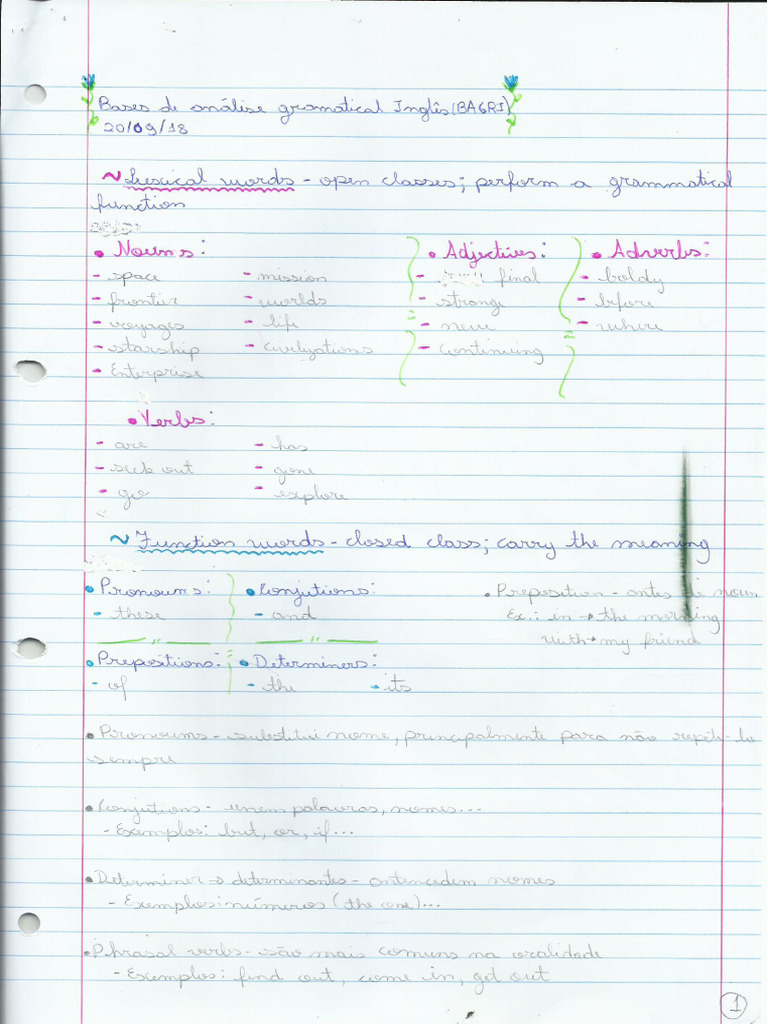 Bases de análise gramatical Inglês (BAGRI)
20/09/18
~ Lexical words - open classes; perform a grammatical
function
• Nouns: • Adjectives: • Adverbs:
- space - mission - final - boldy
- frontier - worlds - strange - before
- voyages - life - new - where
- starship - civilizations - continuing
- Enterprise
• Verbs:
- are - has
- seek out - gone
- go - explore
~ Function words - closed class; carry the meaning
• Pronouns: • Conjutions: • Preposition - antes de noun
- these - and Ex.: in → the morning
with → my friend
• Prepositions: • Determiners:
- of - the - its
• Pronouns - substitui nome, principalmente para não repeti-lo
sempre
• Conjutions - unem palavras, nomes...
- Exemplos: but, or, if...
• Determiner → determinantes - antencedem nomes
- Exemplos: números (the one)...
• Phrasal verbs - são mais comuns na oralidade
- Exemplos: find out, come in, get out
1